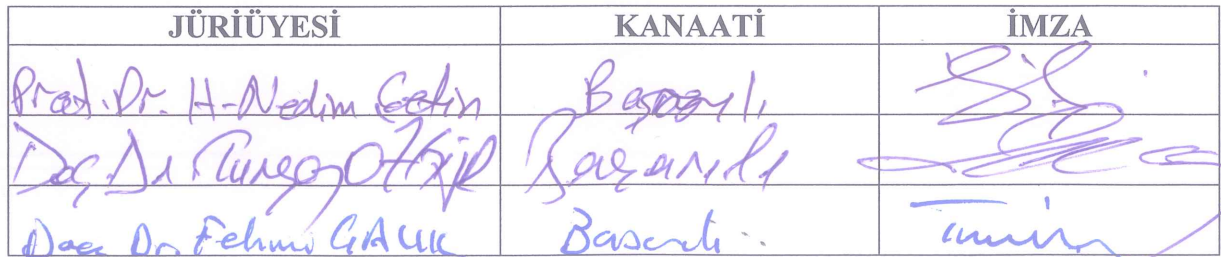 JÜRİÜYESİ KANAATİ İMZA
Prof. Dr. H. Nedim Çetin Başarılı
Doç. Dr. Başarılı
Doç. Dr. Fehmi ÇALIK Başarılı